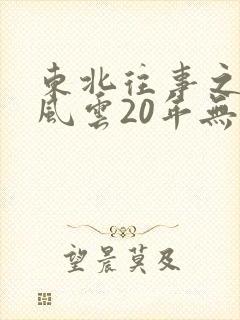 東北往事之
風雲20年無
望晨莫及